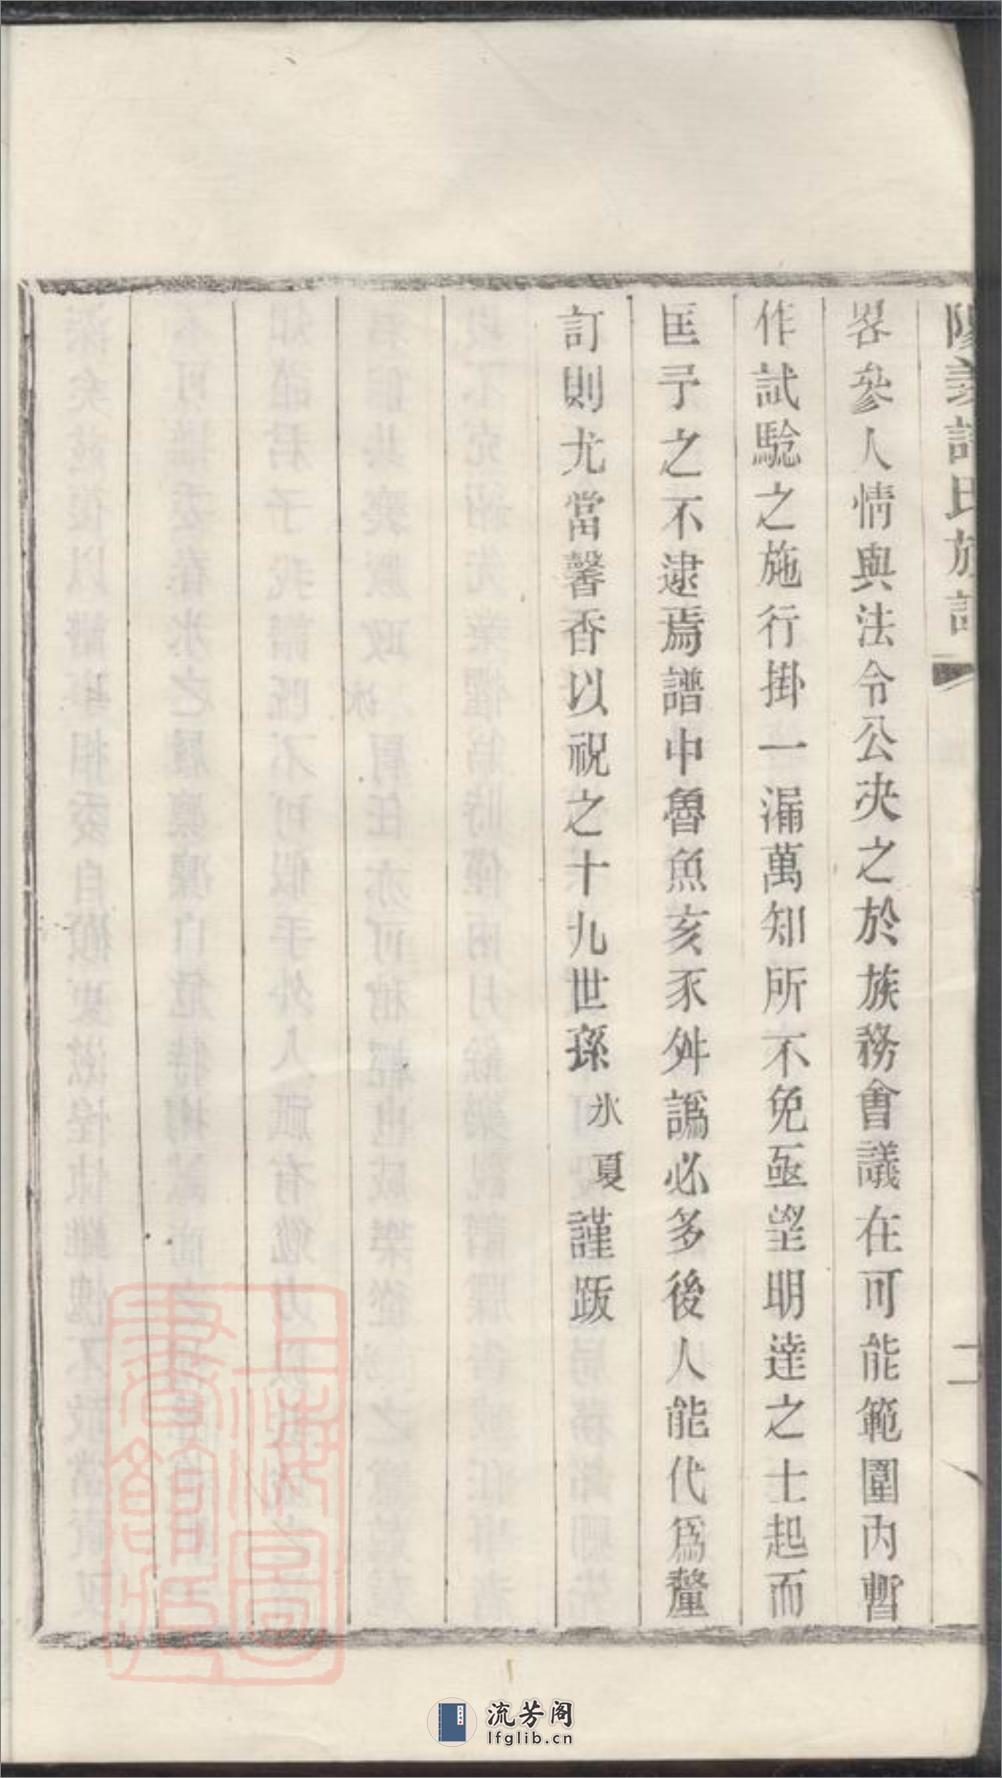 畧參人情與法令公决之於族務會議在可能範圍内暫
作試驗之施行掛一漏萬知所不免亟望明達之士起而
匡予之不逮焉譜中魯魚亥豕舛譌必多後人能代爲釐
訂則尤當馨香以祝之十九世孫氷夏謹跋
二
上海圖書館藏
流芳阁
lfglib.cn